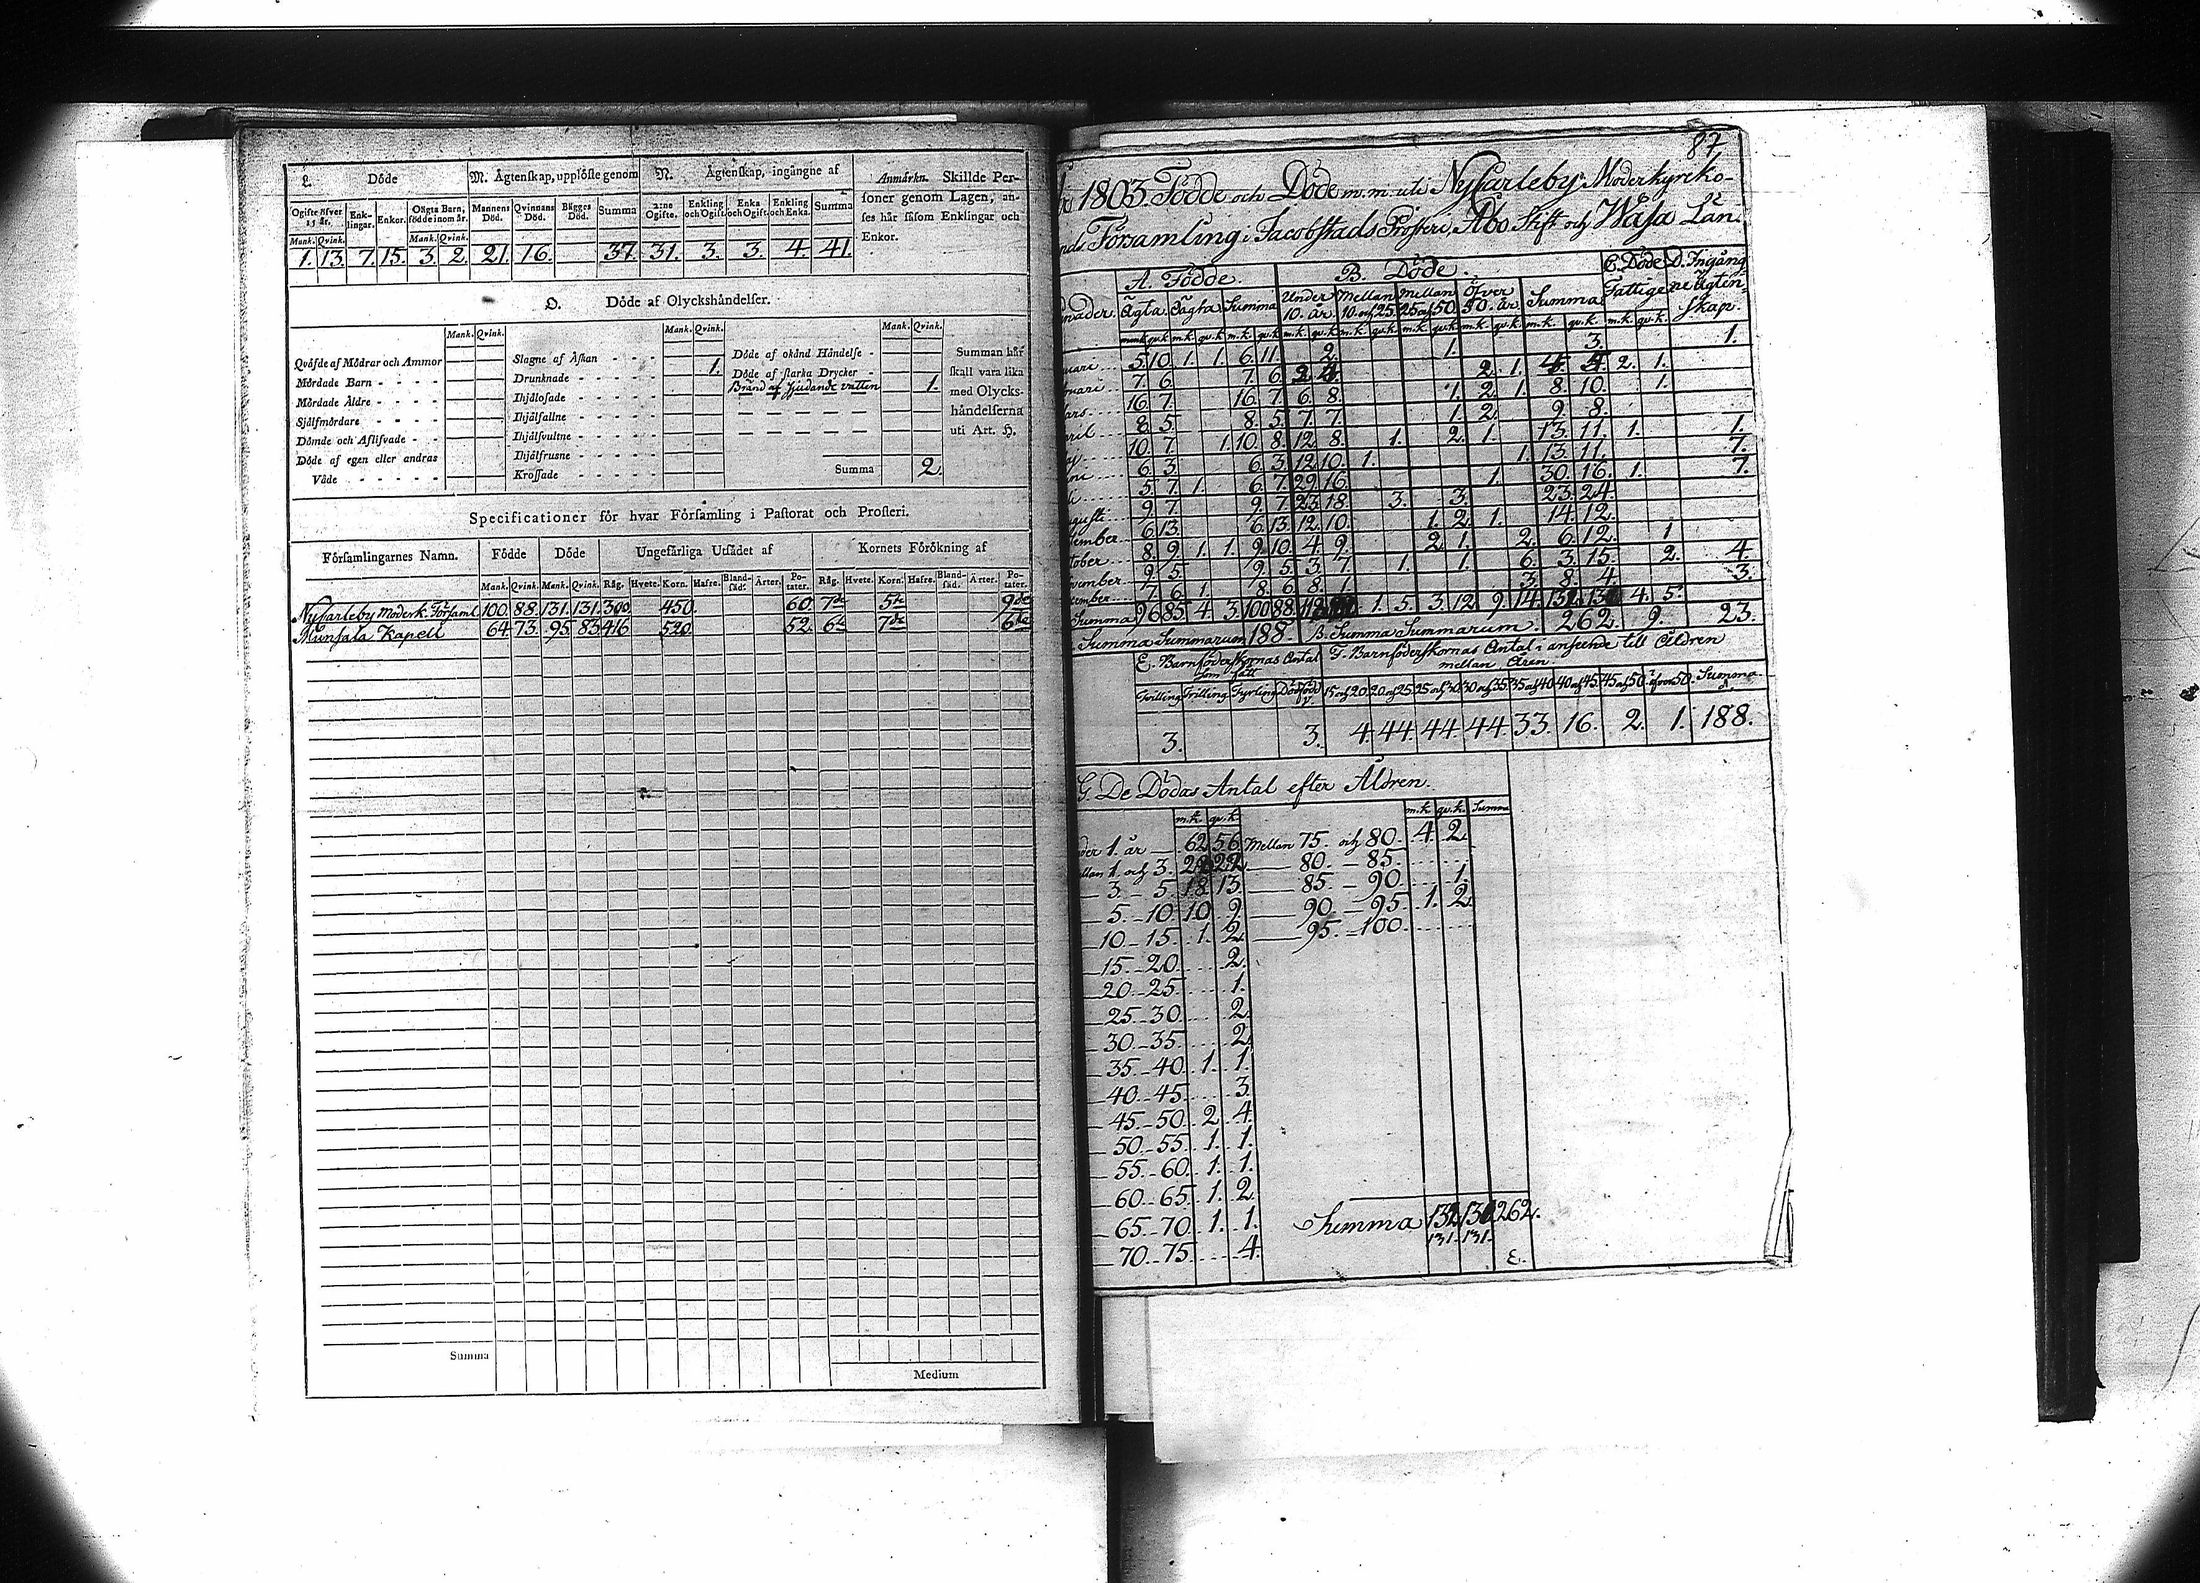 L. Döde
M. Ägtenskap, upplöste genom
N. Ägtenskap, ingångne af
Anmärkn. Skillde Personer genom Lagen, anses här såsom Enklingar och Enkor.
Ogifte öfver 15 år. Enklingar. Enkor. Oägta Barn, födde inom år. Mannens Död. Qvinnans Död. Bägges Död. Summa 2:ne Ogifte. Enkling och Ogift. Enka och Ogift. Enkling och Enka. Summa
Mank. Qvink. Mank. Qvink.
1. 13. 7. 15. 3. 2. 21. 16. 37. 31. 3. 3. 4. 41.
O. Döde af Olyckshändelser.
Mank. Qvink. Mank. Qvink. Mank. Qvink.
Qväfde af Mödrar och Ammor
Mördade Barn - - - -
Mördade Äldre - - - -
Sjelfmördare - - - -
Dömde och Aflifvade - -
Döde af egen eller andras
Våde - - - - -
Slagne af Åskan - - - -
Drunknade - - - - - 1.
Ihjälosade - - - - -
Ihjälfallne - - - - -
Ihjälsvultne - - - - -
Ihjälfrusne - - - - -
Krossade - - - - -
Döde af okänd Händelse -
Döde af starka Drycker -
Bränd af sjudande vatten 1.
Summa 2.
Summan här
skall vara lika
med Olycks-
händelserna
uti Art. H.
Specificationer för hvar Församling i Pastorat och Prosteri.
Församlingarnes Namn. Födde Döde Ungefärliga Utsädet af Kornets Förökning af
Mank. Qvink. Mank. Qvink. Råg. Hvete. Korn. Hafre. Blandsäd. Ärter. Potater. Råg. Hvete. Korn. Hafre. Blandsäd. Ärter. Potater.
NyCarleby Moderk. Församl. 100. 88. 131. 131. 300 450. 60. 7de 5te 9de
Munsala Kapell 64. 73. 95. 83. 416 520. 52. 6te 7de 6te
Summa
Medium
87
1803 Födde och Döde m.m. uti NyCarleby Moderkyrko-
Församling i Jacobstads Prosteri, Åbo Stift och Wasa Län.
A. Födde. B. Döde. C. Döde Fattige D. Ingångne Ägtenskap.
Ägta Oägta Summa Under 10. år Mellan 10. och 25. Mellan 25 och 50. Öfver 50. år Summa
5. 10. 1. 1. 6. 11. 2. 1. 3. 1.
7. 6. 7. 6. 2. 4. 2. 1. 4. 5. 2. 1.
16. 7. 16. 7. 6. 8. 1. 2. 1. 8. 10. 1.
8. 5. 8. 5. 7. 7. 1. 2. 9. 8.
10. 7. 1. 10. 8. 12. 8. 1. 2. 1. 13. 11. 1. 1.
6. 3. 6. 3. 12. 10. 1. 1. 13. 11. 7.
5. 7. 1. 6. 7. 29. 16. 1. 30. 16. 1. 7.
9. 7. 9. 7. 23. 18. 3. 3. 23. 24.
6. 13. 6. 13. 12. 10. 1. 2. 1. 14. 12.
8. 9. 1. 1. 9. 10. 4. 9. 2. 1. 2. 6. 12. 1
9. 5. 9. 5. 3. 7. 1. 1. 6. 3. 15. 2. 4.
7. 6. 1. 8. 6. 8. 1. 3. 8. 4. 3.
Summa 96 85. 4. 3. 100 88. 1. 5. 3. 12. 9. 14. 4. 5. 23.
Summa Summarum 188. B. Summa Summarum. 262. 9.
E. Barnföderskornas Antal som fått
F. Barnföderskornas Antal i anseende till Åldren mellan Åren.
Tvilling Trilling Fyrling Dödföde 15 och 20. 20 och 25. 25 och 30. 30 och 35. 35 och 40. 40 och 45. 45 och 50. öfver 50. Summa
3. 3. 4. 44. 44. 44. 33. 16. 2. 1. 188.
G. De Dödas Antal efter Åldren.
m.k. qv.k. m.k. qv.k. Summa
1. år 62 56 Mellan 75. och 80. 4. 2.
1 och 3. 80. - 85.
3. - 5. 18. 13. 85. - 90. 1.
5. - 10. 10. 9. 90. - 95. 1. 2.
10. - 15. 1. 2. 95. - 100.
15. - 20. 2.
20. - 25. 1.
25. - 30. 2.
30. - 35. 2.
35. - 40. 1. 1.
40. - 45. 3.
45. - 50. 2. 4.
50. - 55. 1. 1.
55. - 60. 1. 1.
60. - 65. 1. 2.
65. - 70. 1. 1.
70. - 75. 4.
Summa 132. 130. 262.
131. 131.